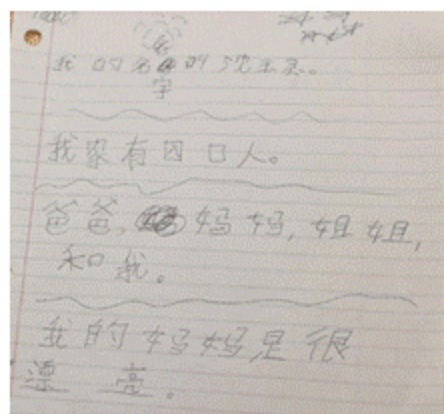 我的名叫
字
我家有四口人。
爸爸,妈妈,姐姐,
和我。
我的妈妈是很
漂亮。